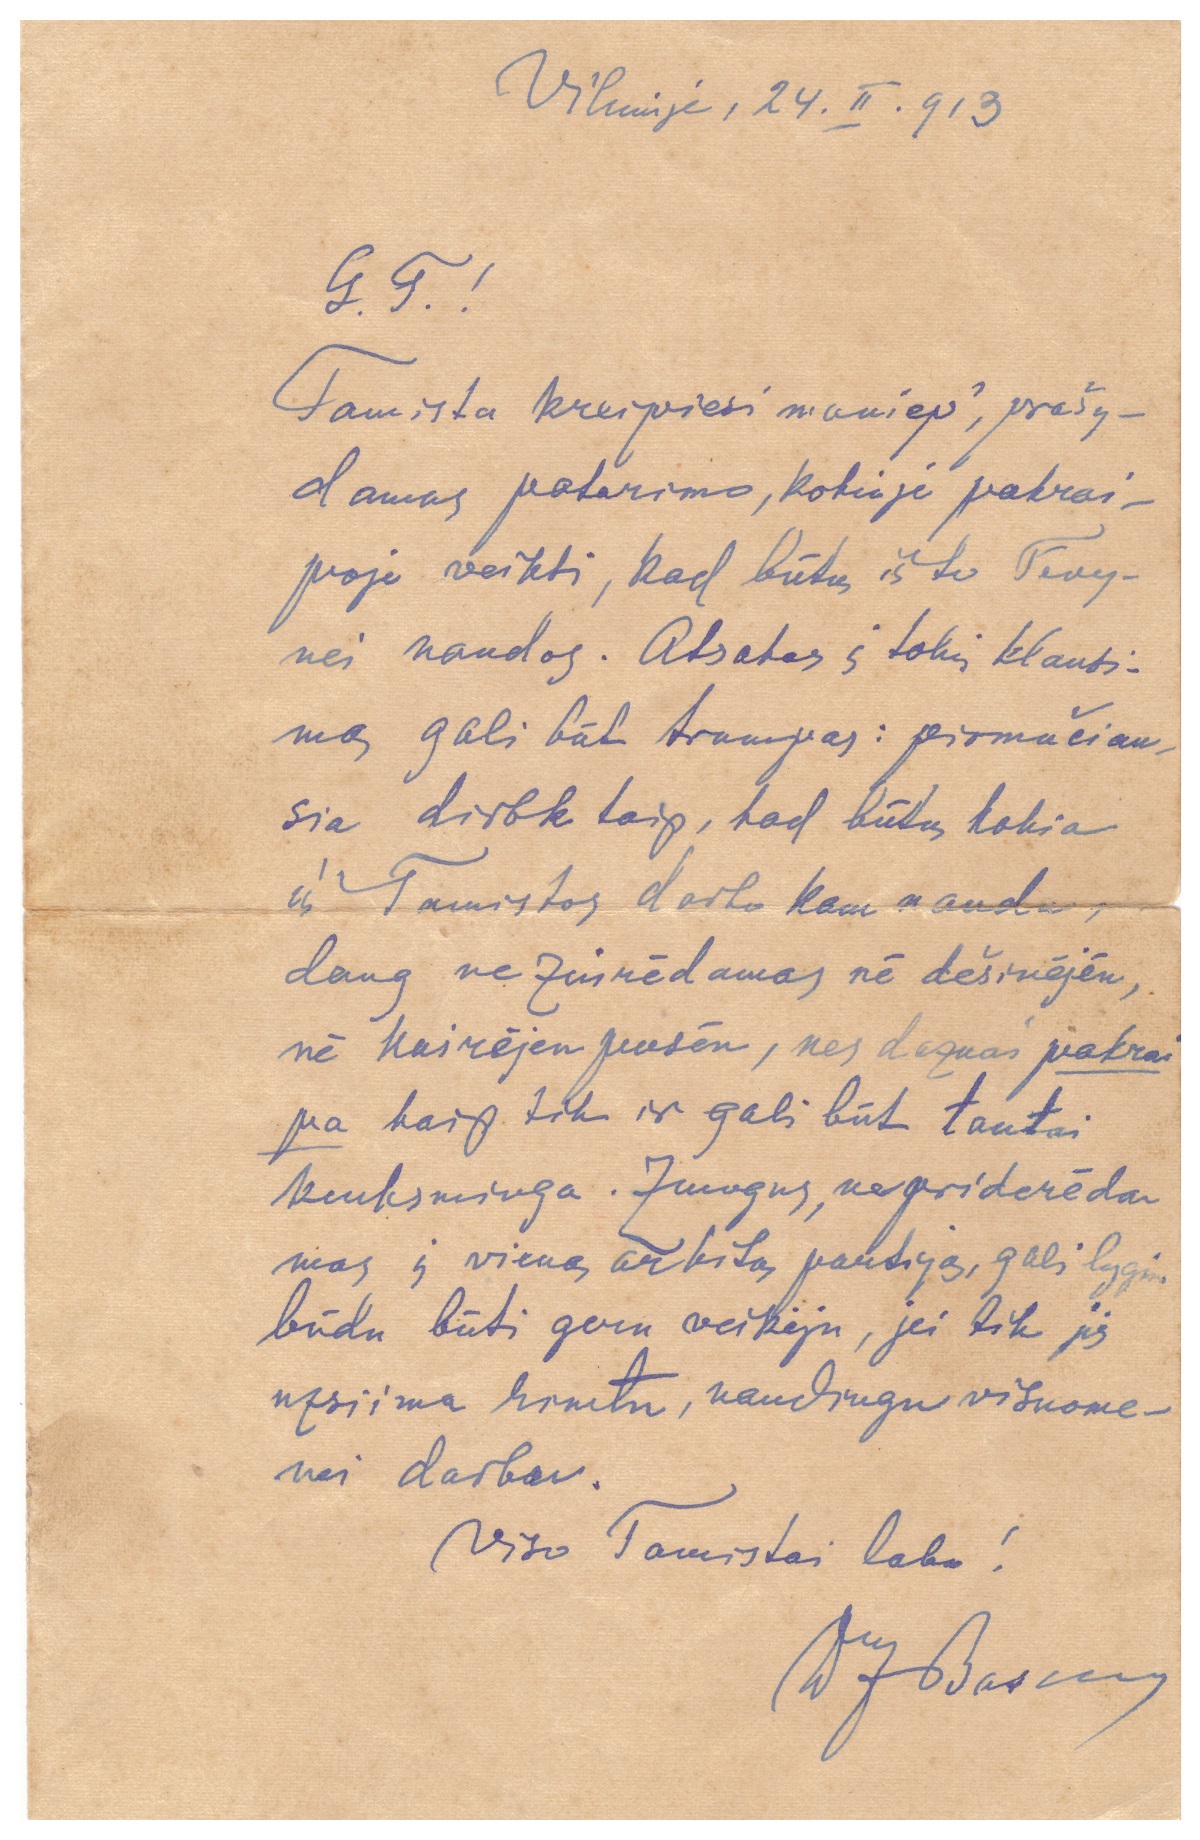 Vilniuje, 24. II. 913
G. T.!
Tamista kreipiesi maniep', prašy-
damas patarimo, kokioje pakrai-
poje veikti, kad būtų iš to Tėvy-
nei naudos. Atsakas į tokį klausi-
mą gali būt trumpas: pirmučiau-
sia dirbk taip, kad būtų kokia
iš Tamistos darbo kam nauda,
daug ne žiūrėdamas nė dešinėjėn,
nė kairėjen pusėn, nes dažnai pakrai
pa kaip tik ir gali būt tautai
kenksminga. Žmogus, nepriderėda-
mas į vieną ar kitą partiją, gali lygiu
būdu būti geru veikėju, jei tik jis
užsiima rimtu, naudingu visuome-
nei darbu.
Viso Tamistai labo!
Dr J Basanav